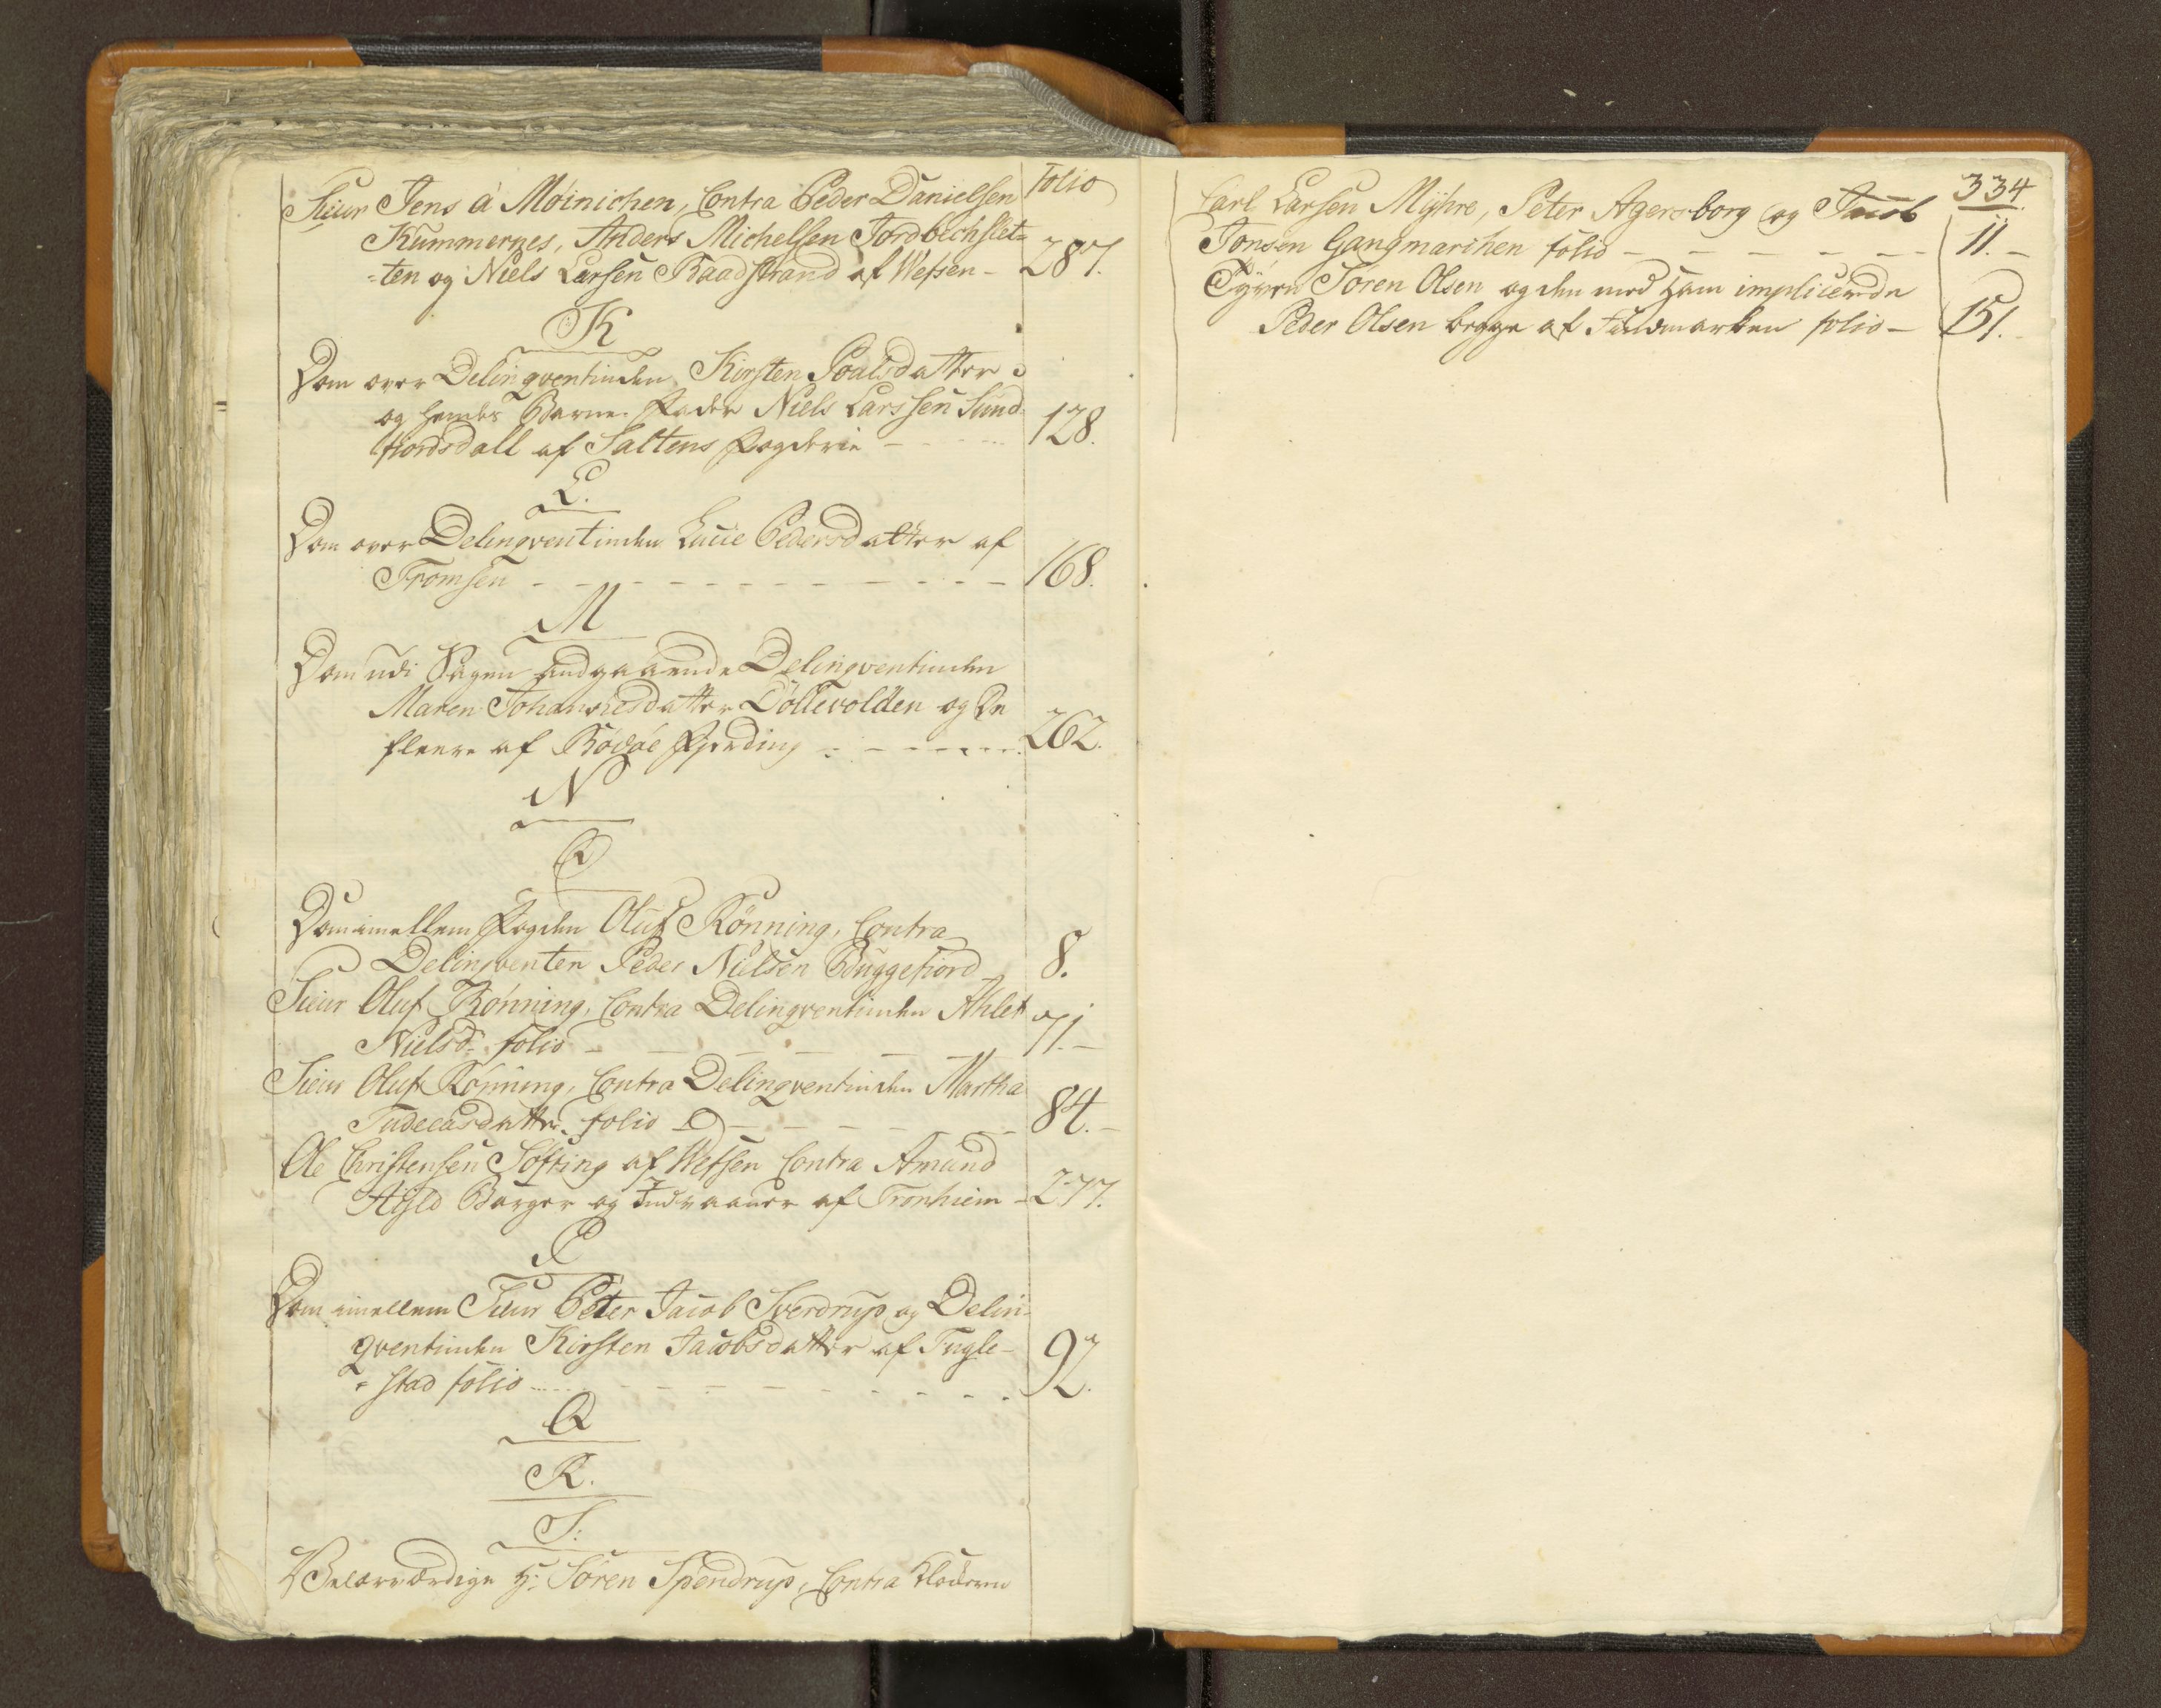 Folio
Sieur Jens á Möinichen, Contra Peder Danielsen
Kummernes, Anders Michelsen Jordbechslet=
=ten og Niels Larsen Baadstrand af Wefsen - 287.
K
Dom over Delinqventinden Kirsten Poulsdatter
og hendes Barne-Fader Niels Larssen Sund
fiordsdall af Saltens Fogderie - - - 128.
L.
Dom over Delinqventinden Lucie Pedersdatter af
Tromsen - - - - - - - - - - 168.
M
Dom udi Sagen andgaaende Delinqventinden
Maren Johannesdatter Döllevolden og De
fleere af Rödöe Fierding - - - - - 262.
N
O
Dom imellem Fogden Oluf Rönning, Contra
Delinqventen Peder Nielsen Buggefiord 8.
Sieur Oluf Rönning, Contra Delinqventinden Ahlet
Nielsd: folio - - - - 71. -
Sieur Oluf Rönning, Contra Delinqventinden Martha
Judeasdatter folio - - - - - - 84. -
Ole Christensen Söfting af Wefsen Contra Amund
Borger og Indvaaner af Tronhiem - 277.
P
Dom imellem Sieur Peter Jacob Sverdrup og Delin=
qventinden Kirsten Jacobsdatter af Fugle-
=stad folio - - - - - - - 92.
Q
R.
S:
Velærværdige Hr: Sören Spendrup, Contra Klokeren
334
Carl Larsen Myhre, Peter Agersborg og Jacob
Jonsen Gangmarchen folio - - - - - - 11. -
Tyven Sören Olsen og den med ham implicerede
Peder Olsen begge af Findmarken folio - 151.